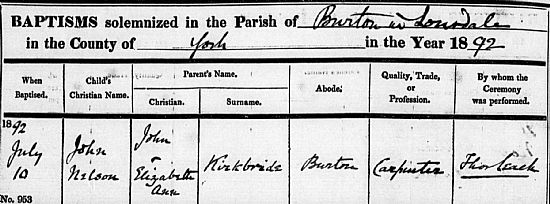 BAPTISMS solemnized in the Parish of Burton in Lonsdale
in the County of York in the Year 1892
When Baptised. Child's Christian Name. Parent's Name. Christian. Surname. Abode. Quality, Trade, or Profession. By whom the Ceremony was performed.
1892 July 10 John Nelson John & Elizabeth Ann Kirkbride Burton Carpenter Thos
No. 953